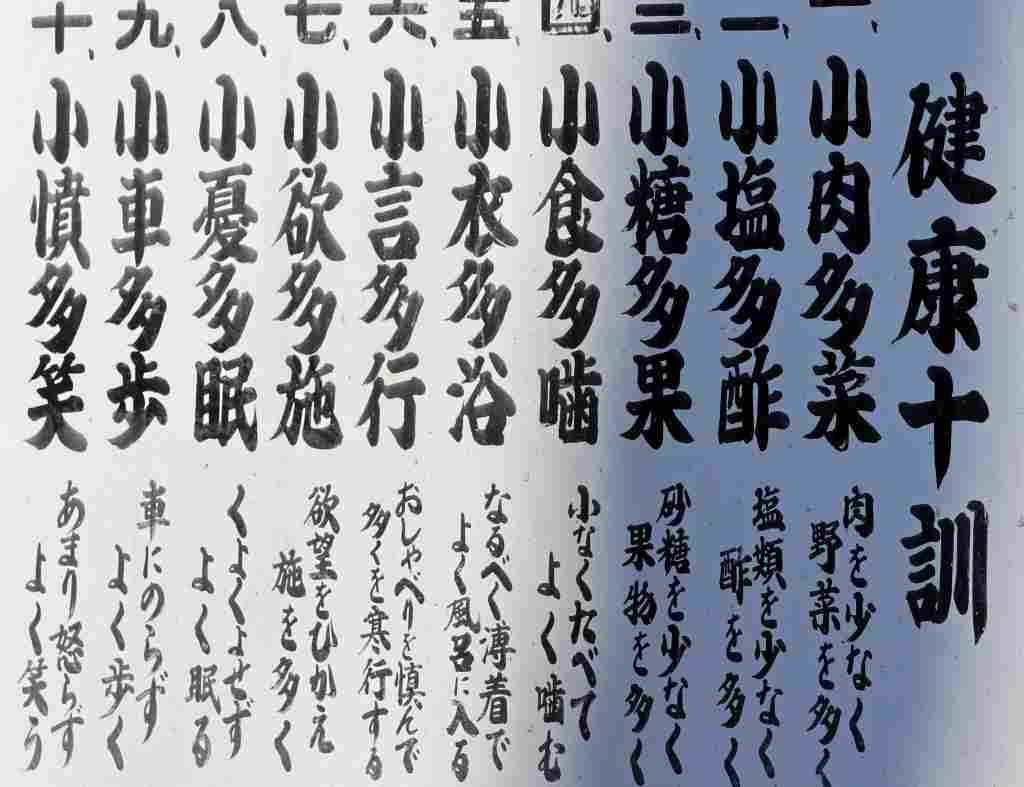 健康十訓
一、小肉多菜
肉を少なく
野菜を多く
二、小塩多酢
塩類を少なく
酢を多く
三、小糖多果
砂糖を少なく
果物を多く
四、小食多噛
小なくたべて
よく噛む
五、小衣多浴
なるべく薄着で
よく風呂に入る
六、小言多行
おしゃべりを慎んで
多くを寒行する
七、小欲多施
欲望をひかえ
施を多く
八、小憂多眠
くよくよせず
よく眠る
九、小車多歩
車にのらず
よく歩く
十、小憤多笑
あまり怒らず
よく笑う